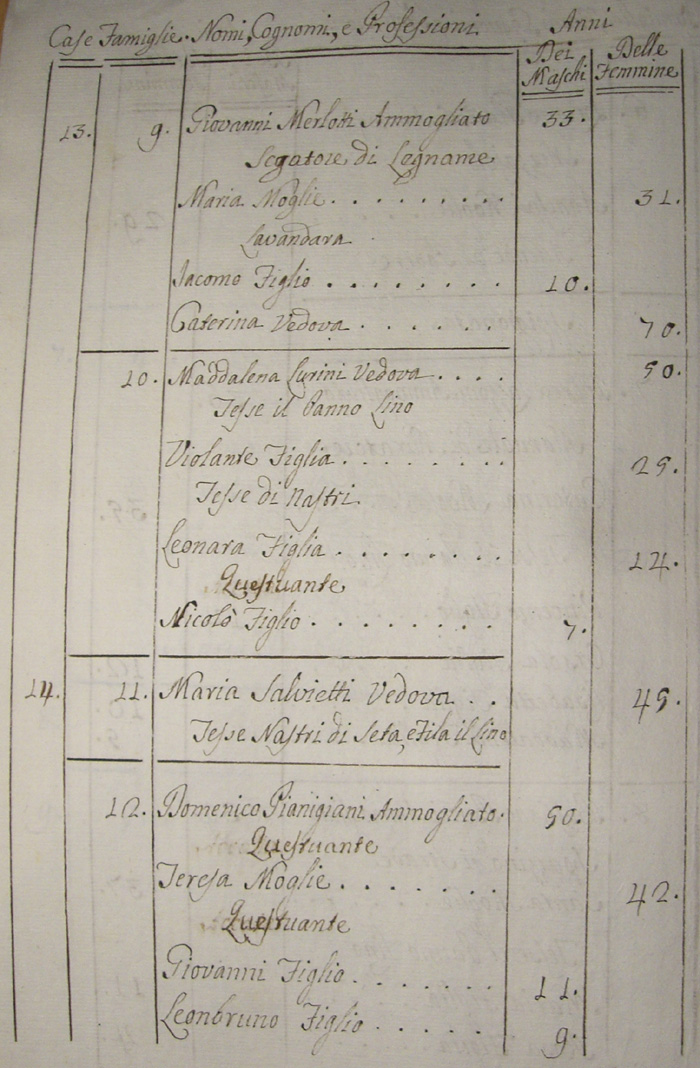 Case Famiglie. Nomi, Cognomi, e Professioni. Anni
Dei Maschi Delle Femmine
13. 9. Giovanni Merlotti Ammogliato 33.
Segatore di Legname
Maria Moglie . . . . . . . . . 31.
Lavandara
Iacomo Figlio . . . . . . . . 10.
Caterina Vedova . . . . . . 70.
10. Maddalena Lurini Vedova . . . . 50.
Tesse il Panno Lino
Violante Figlia . . . . . . . . 25.
Tesse di Nastri.
Leonara Figlia . . . . . . . . 14.
Questuante
Nicolò Figlio . . . . . . . . . 7.
14. 11. Maria Salvietti Vedova . . . 45.
Tesse Nastri di Seta, e Fila il Lino
12. Domenico Pianigiani Ammogliato. 50.
Questuante
Teresa Moglie . . . . . . . 42.
Questuante
Giovanni Figlio . . . . . . . 11.
Leonbruno Figlio . . . . . . 9.